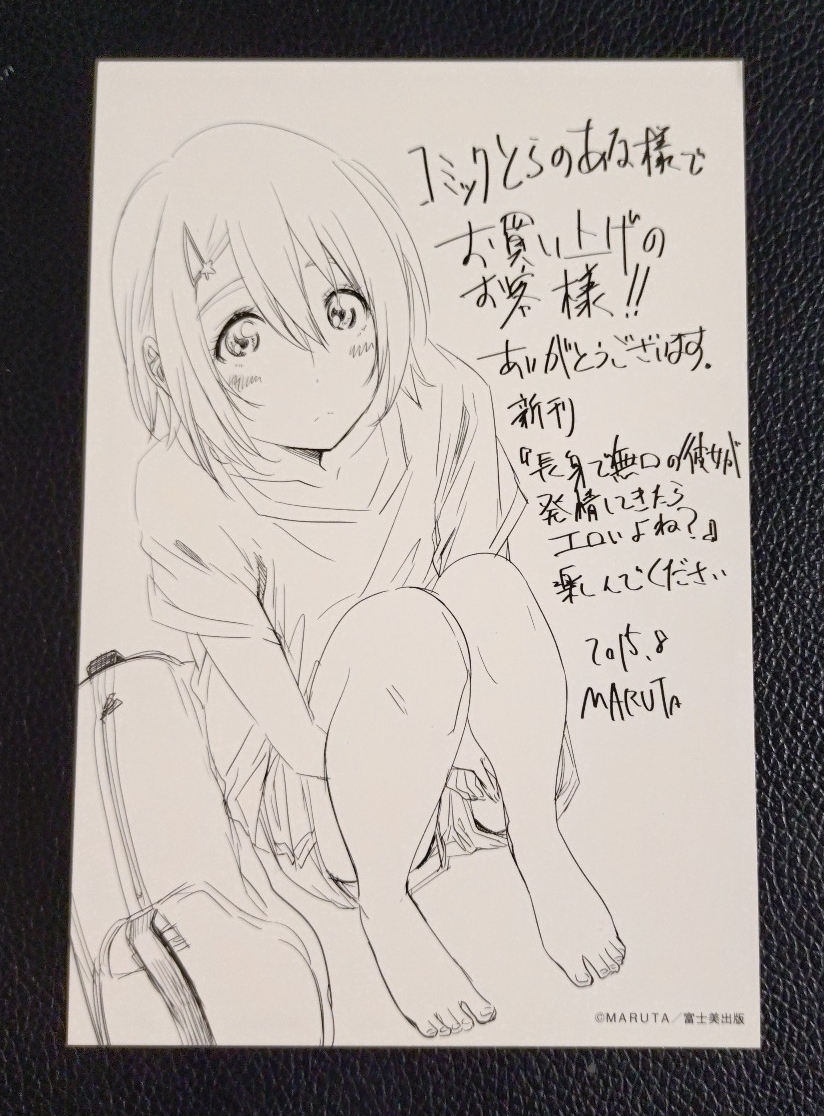 コミックとらのあな様で
お買い上げの
お客様!!
ありがとうございます.
新刊
『長身で無口の彼女が
発情してきたら
エロいよね?』
楽しんでください
2015.8
MARUTA
©MARUTA／富士美出版